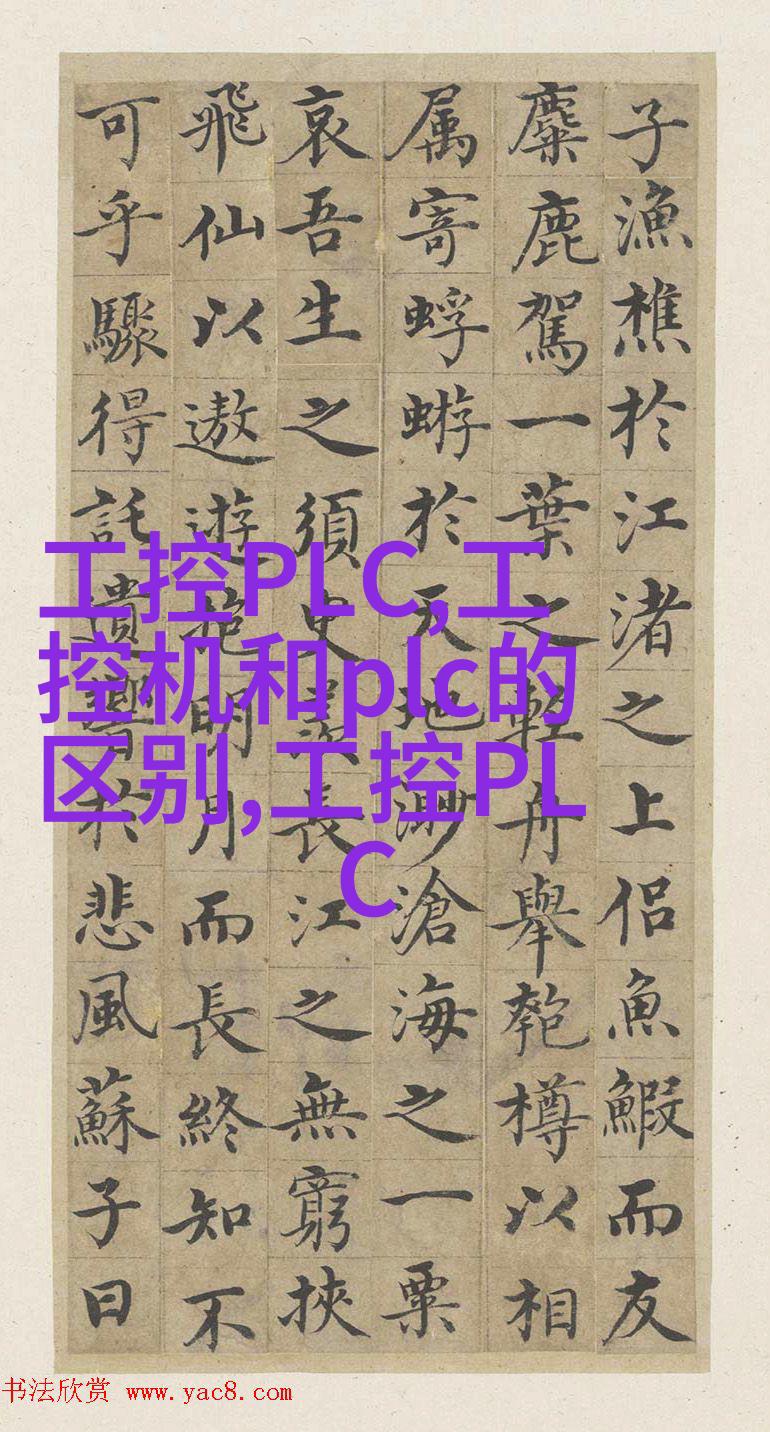 子漁樵於江渚之上侶魚鰕而友
麋鹿駕一葉之輕舟舉匏樽以相
属寄蜉蝣於天地渺滄海之一粟
哀吾生之須臾羨長江之無窮挾
飛仙以遨遊抱明月而長終知不
可乎驟得託遺響於悲風蘇子曰
工控PLC,工
控机和plc的
区别,工控PL
C
书法欣赏 www.yac8.com